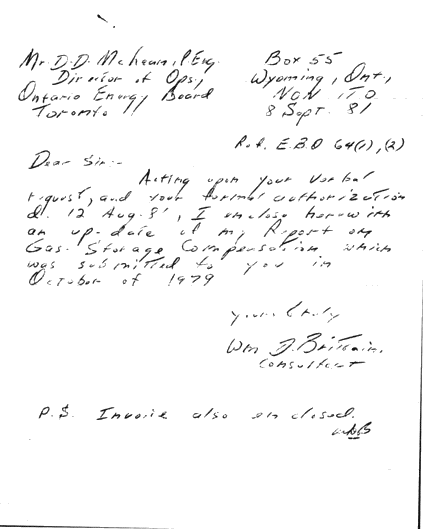 Mr. D.D. McLean, P. Eng.
Director of Ops.,
Ontario Energy Board
Toronto
Box 55
Wyoming, Ont.,
N0N 1T0
8 Sept. 81
Ref. E.B.O 64(1),(2)
Dear Sir:-
Acting upon your verbal
request, and your formal authorization
d. 12 Aug. 81, I enclose herewith
an up-date of my Report on
Gas Storage Compensation which
was submitted to you in
October of 1979
Yours truly
Wm J. Brittain,
Consultant
P.S. Invoice also enclosed.